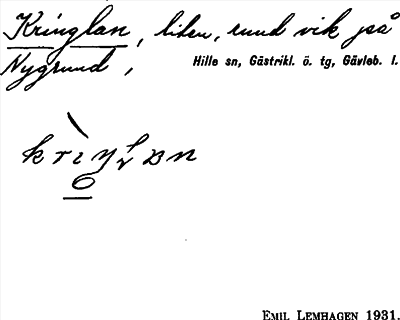 Kringlan, liten, rund vik på
Nygrund,
Hille sn, Gästrikl. ö. tg, Gävleb. l.
EMIL LEMHAGEN 1931.